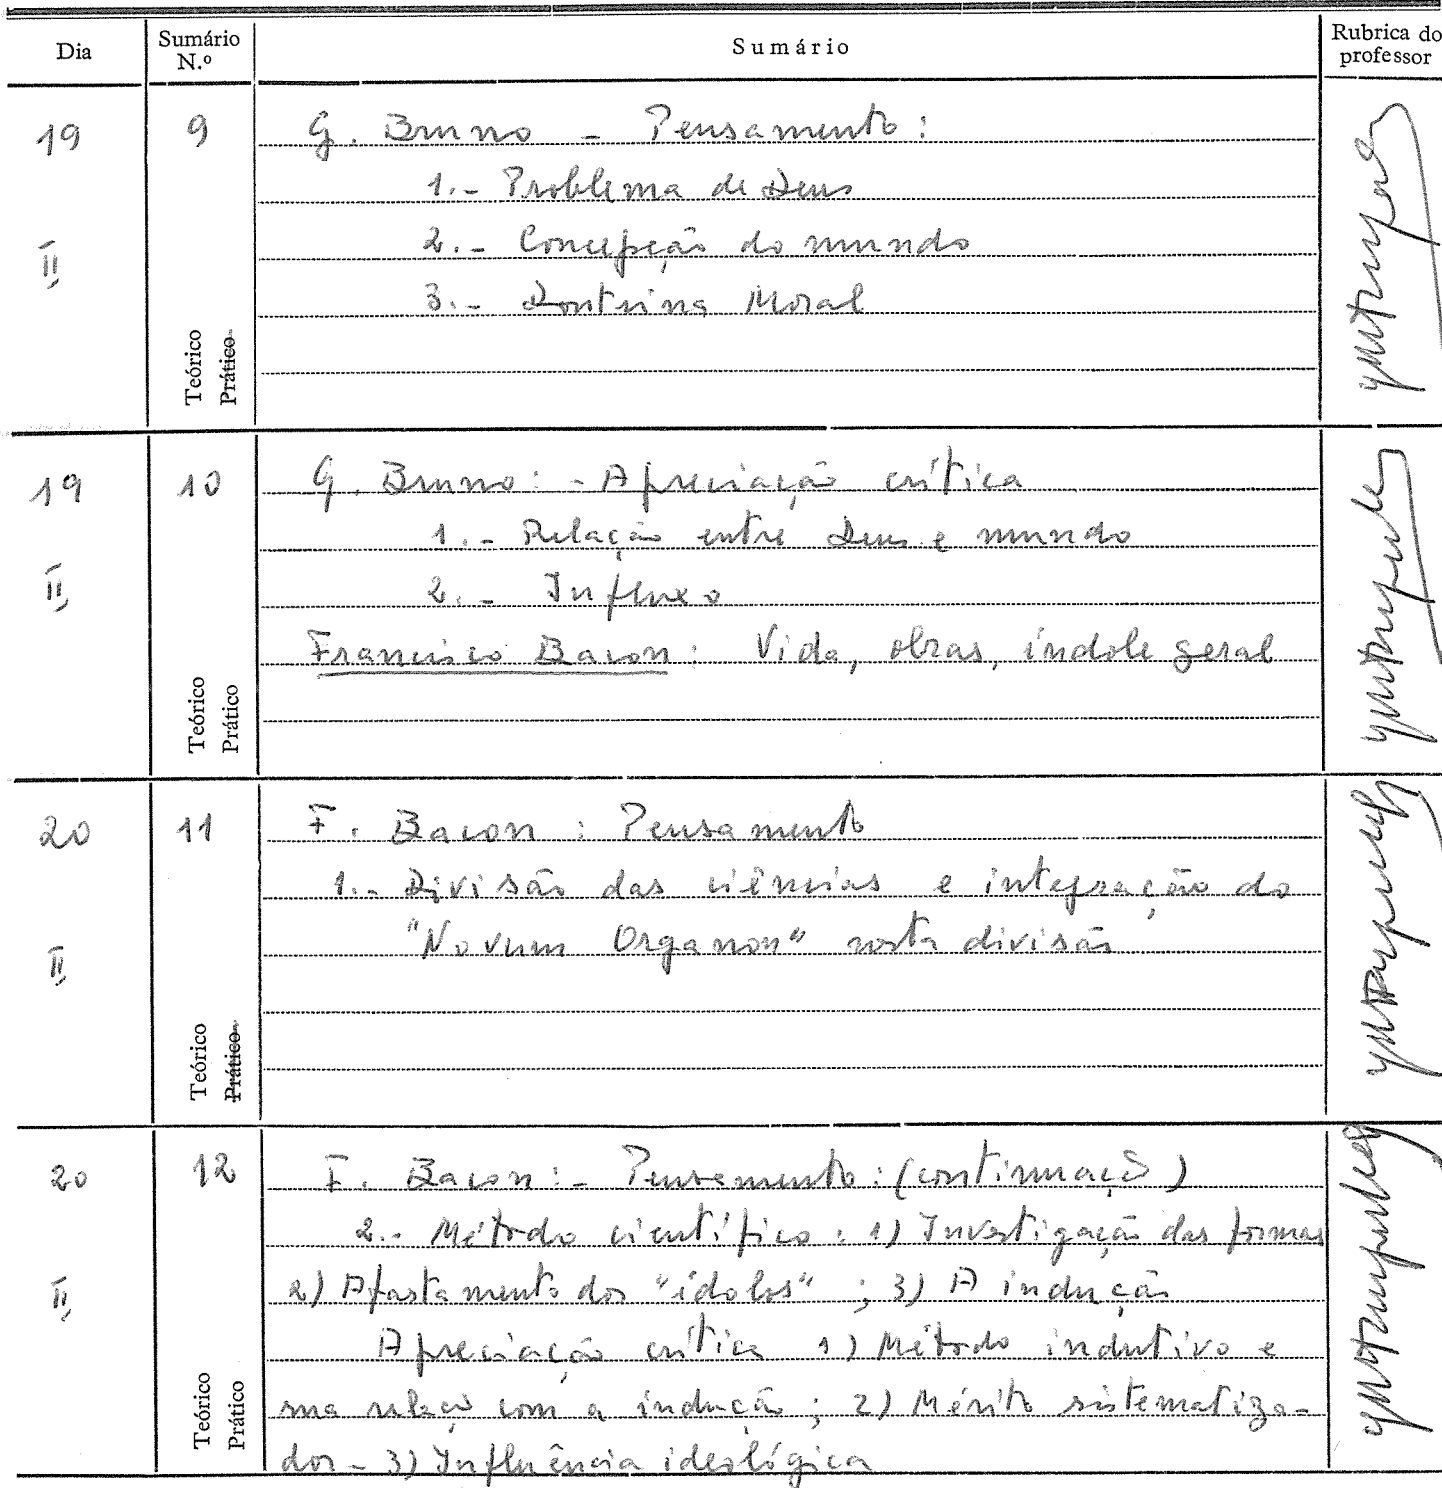 Dia
Sumário N.º
Sumário
Rubrica do professor
19
II
9
Teórico
Prático
G. Bruno - Pensamento:
1.- Problema de Deus
2.- Concepção do mundo
3.- Doutrina Moral
19
II
10
Teórico
Prático
G. Bruno: - Apreciação crítica
1.- Relação entre Deus e mundo
2.- Influxo
Francisco Bacon: Vida, obras, índole geral
20
II
11
Teórico
Prático
F. Bacon: Pensamento
1.- Divisão das ciências e integração do
"Novum Organon" nesta divisão
20
II
12
Teórico
Prático
F. Bacon:- Pensamento: (continuação)
2.- Método científico: 1) Investigação das formas
2) Afastamento dos "ídolos"; 3) A indução
Apreciação crítica 1) Método indutivo e
sua relação com a indução; 2) Mérito sistematiza-
dor - 3) Influência ideológica